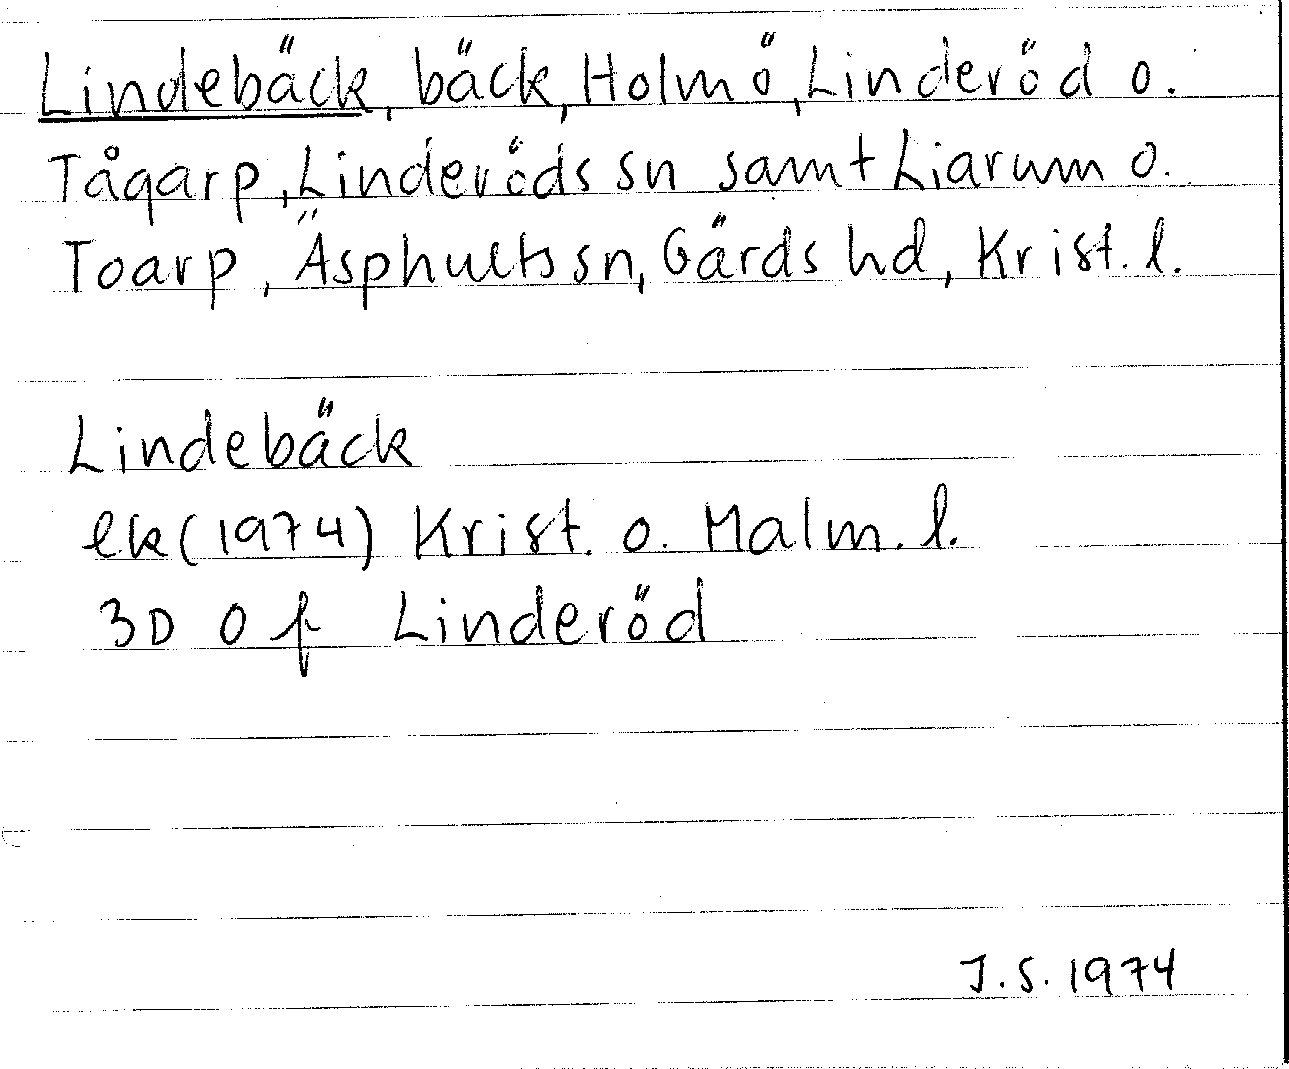 Lindebäck, bäck, Holmö, Linderöd o.
Tågarp, Linderöds sn samt Liarum o.
Toarp, Äsphults sn, Gärds hd, Krist. l.
Lindebäck
ek (1974) Krist. o. Malm. l.
3D 0 f Linderöd
J.S. 1974